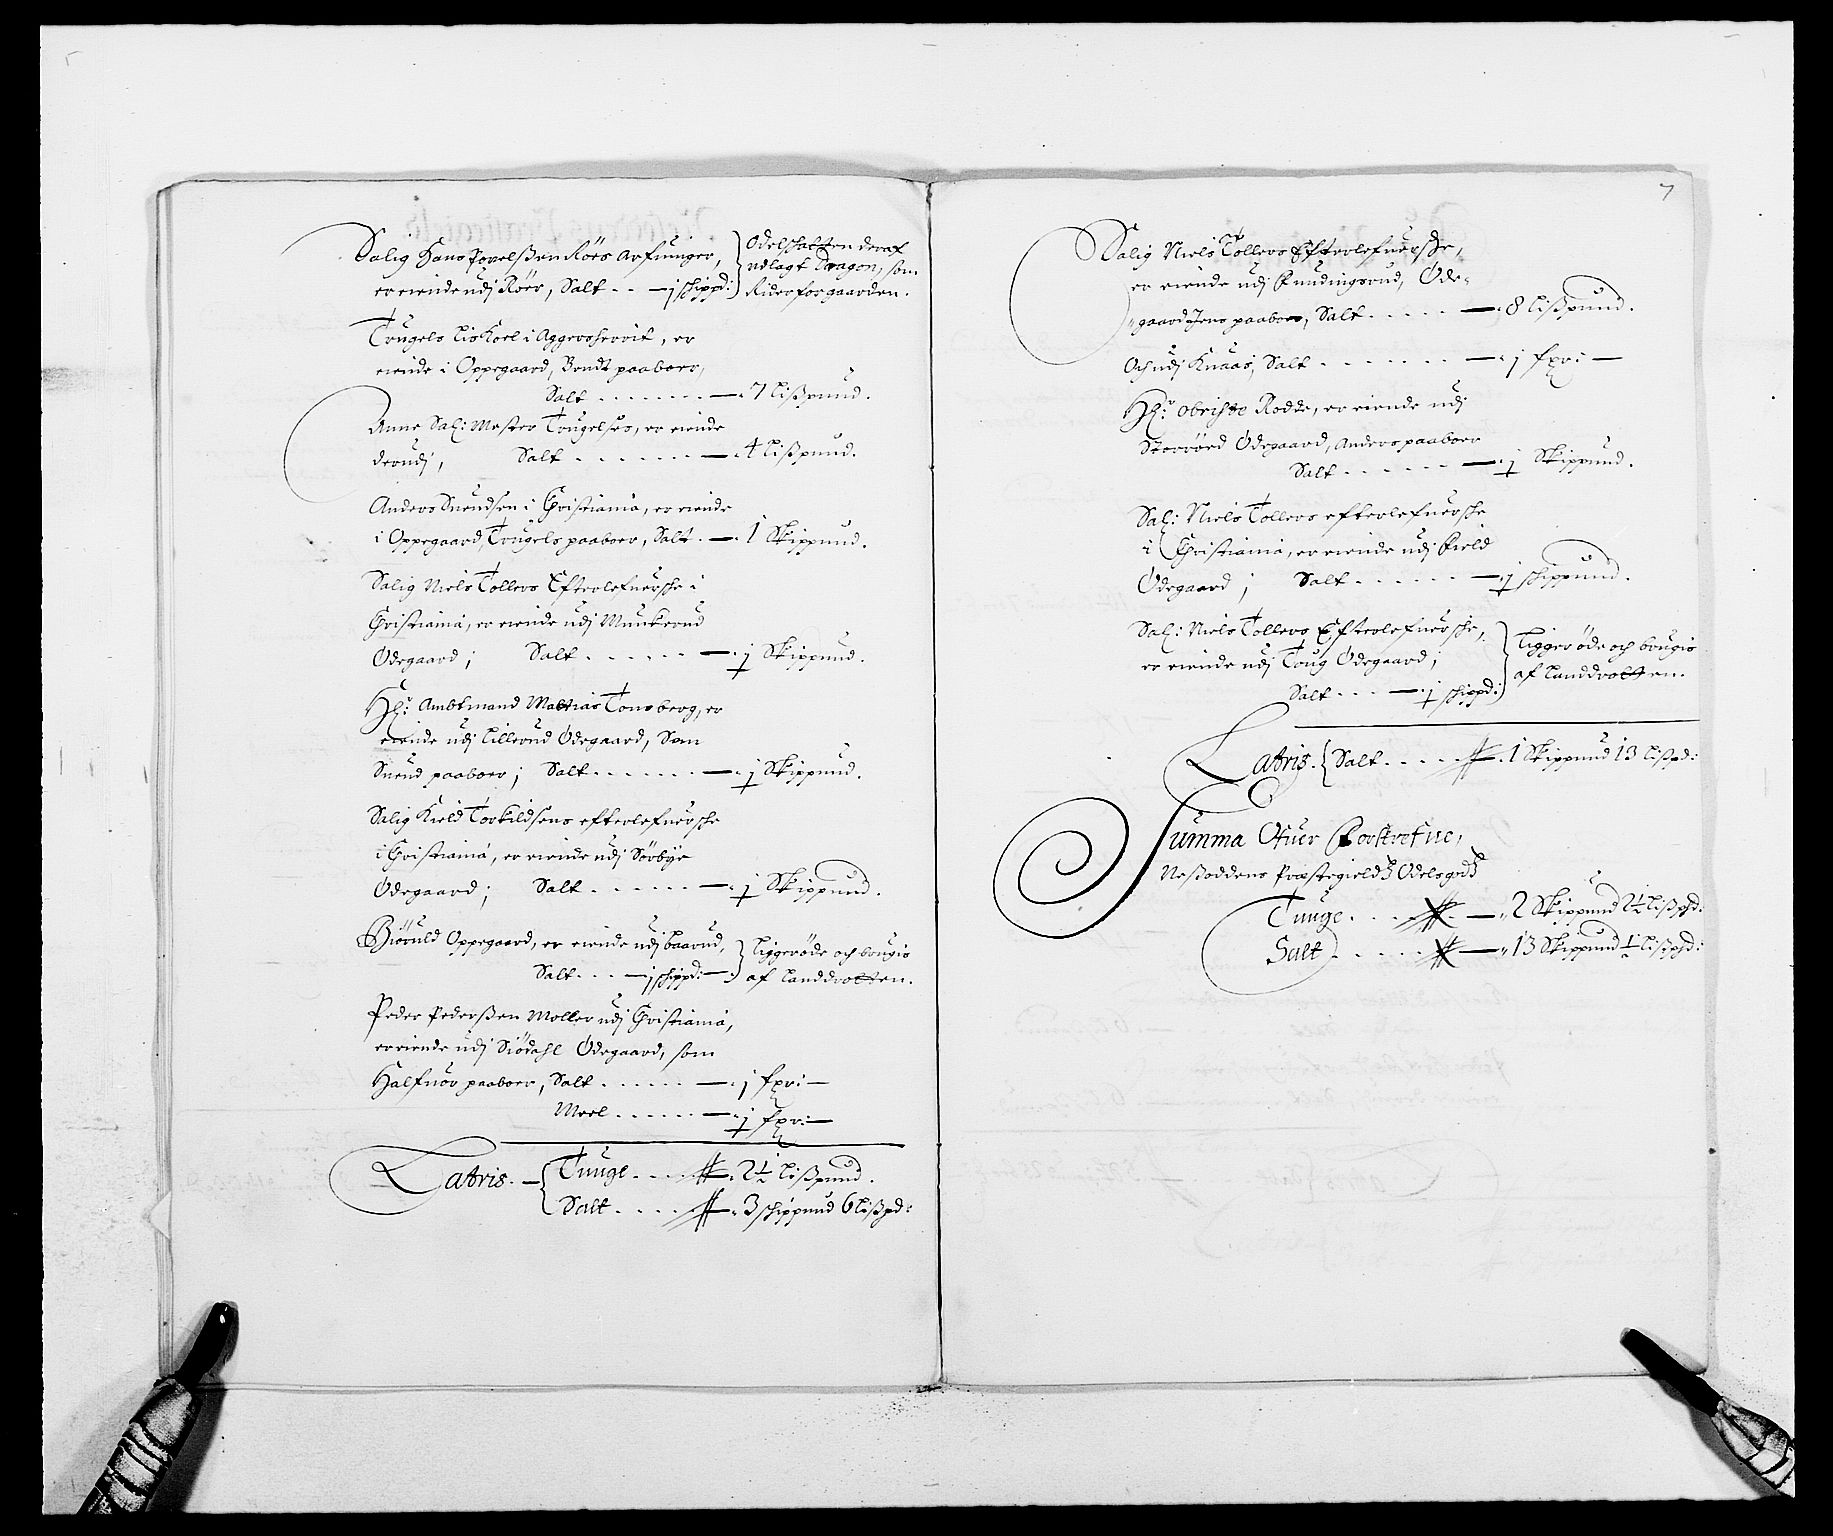 Salig Hans Povelßen Röers Arfuinger,
er eiende udj Röer, Salt . . — j schippd:
Odelskatten deraf
udlagt Dragon, som
Rider for gaarden.
Trugels Liskoel i Aggersherrit, er
eiende i Oppegaard, Bendt paaboer,
Salt . . . . . . . — 7 Lißpund.
Anne Sal: Mester Trugelses, er eiende
derudj, Salt . . . . . . — 4 Lißpund.
Anders Suendsen i Christiania, er eiende
i Oppegaard, Trugels paaboer, Salt . — 1 Skippund.
Salig Niels Tollers Efterlefuersche i
Christiania, er eiende udj Munkerud
Ödegaard; Salt . . . . . — ½ Skippund.
Hr: Ambtmand Mattias Tonsberg, er
eiende udj Lillerud Ödegaard, Som
Suend paaboer; Salt . . . . . . — ½ Skippund.
Salig Kield Torkildsens efterlefuersche
i Christiania, er eiende udj Sörbye
Ödegaard; Salt . . . . . . — ½ Skippund.
Biöruld Oppegaard, er eiende udj Baarud,
Salt . . . — j schippd: —
Ligger öde och brugis
af Landdrotten.
Peder Pederßen Moller udj Christiania,
er eiende udj Siödahl Ödegaard, som
Halfuor paaboer, Salt . . . . . . — j fxr: —
Meel . . . . . — ½ fxr: —
Latris. — Tunge . . . . 2½ Lißpund.
Salt . . . . 3 schippund 6 lißpd:
7
Salig Niels Tollers Efterlefuersche,
er eiende udj Fundingsrud, Öde-
gaard Jens paaboer, Salt . . . . . — 8 Lißpund.
Och udj Knaas, Salt . . . . . . . — j fxr: —
Hr: Obriste Rodde, er eiende udj
Storröed Ödegaard, Anders paaboer
Salt . . . . . — ½ Skippund.
Sal: Niels Tollers efterlefuersche
i Christiania, er eiende udj Field
Ödegaard; Salt . . . . . . — ½ schippund.
Sal: Niels Tollers Efterlefuersche,
er eiende udj Toug Ödegaard;
Salt . . . — ½ schippd:
Ligger öde och brugis
af Landdrotten.
Latris. Salt . . . . . 1 Skippund 13 lißpd:
Summa Ofuer Forskrefne,
Neßoddens Præstegields Odelsgods
Tunge . . . — 2 Skippund 2½ Lißpd:
Salt . . . . . — 13 Skippund ½ Lißpd: